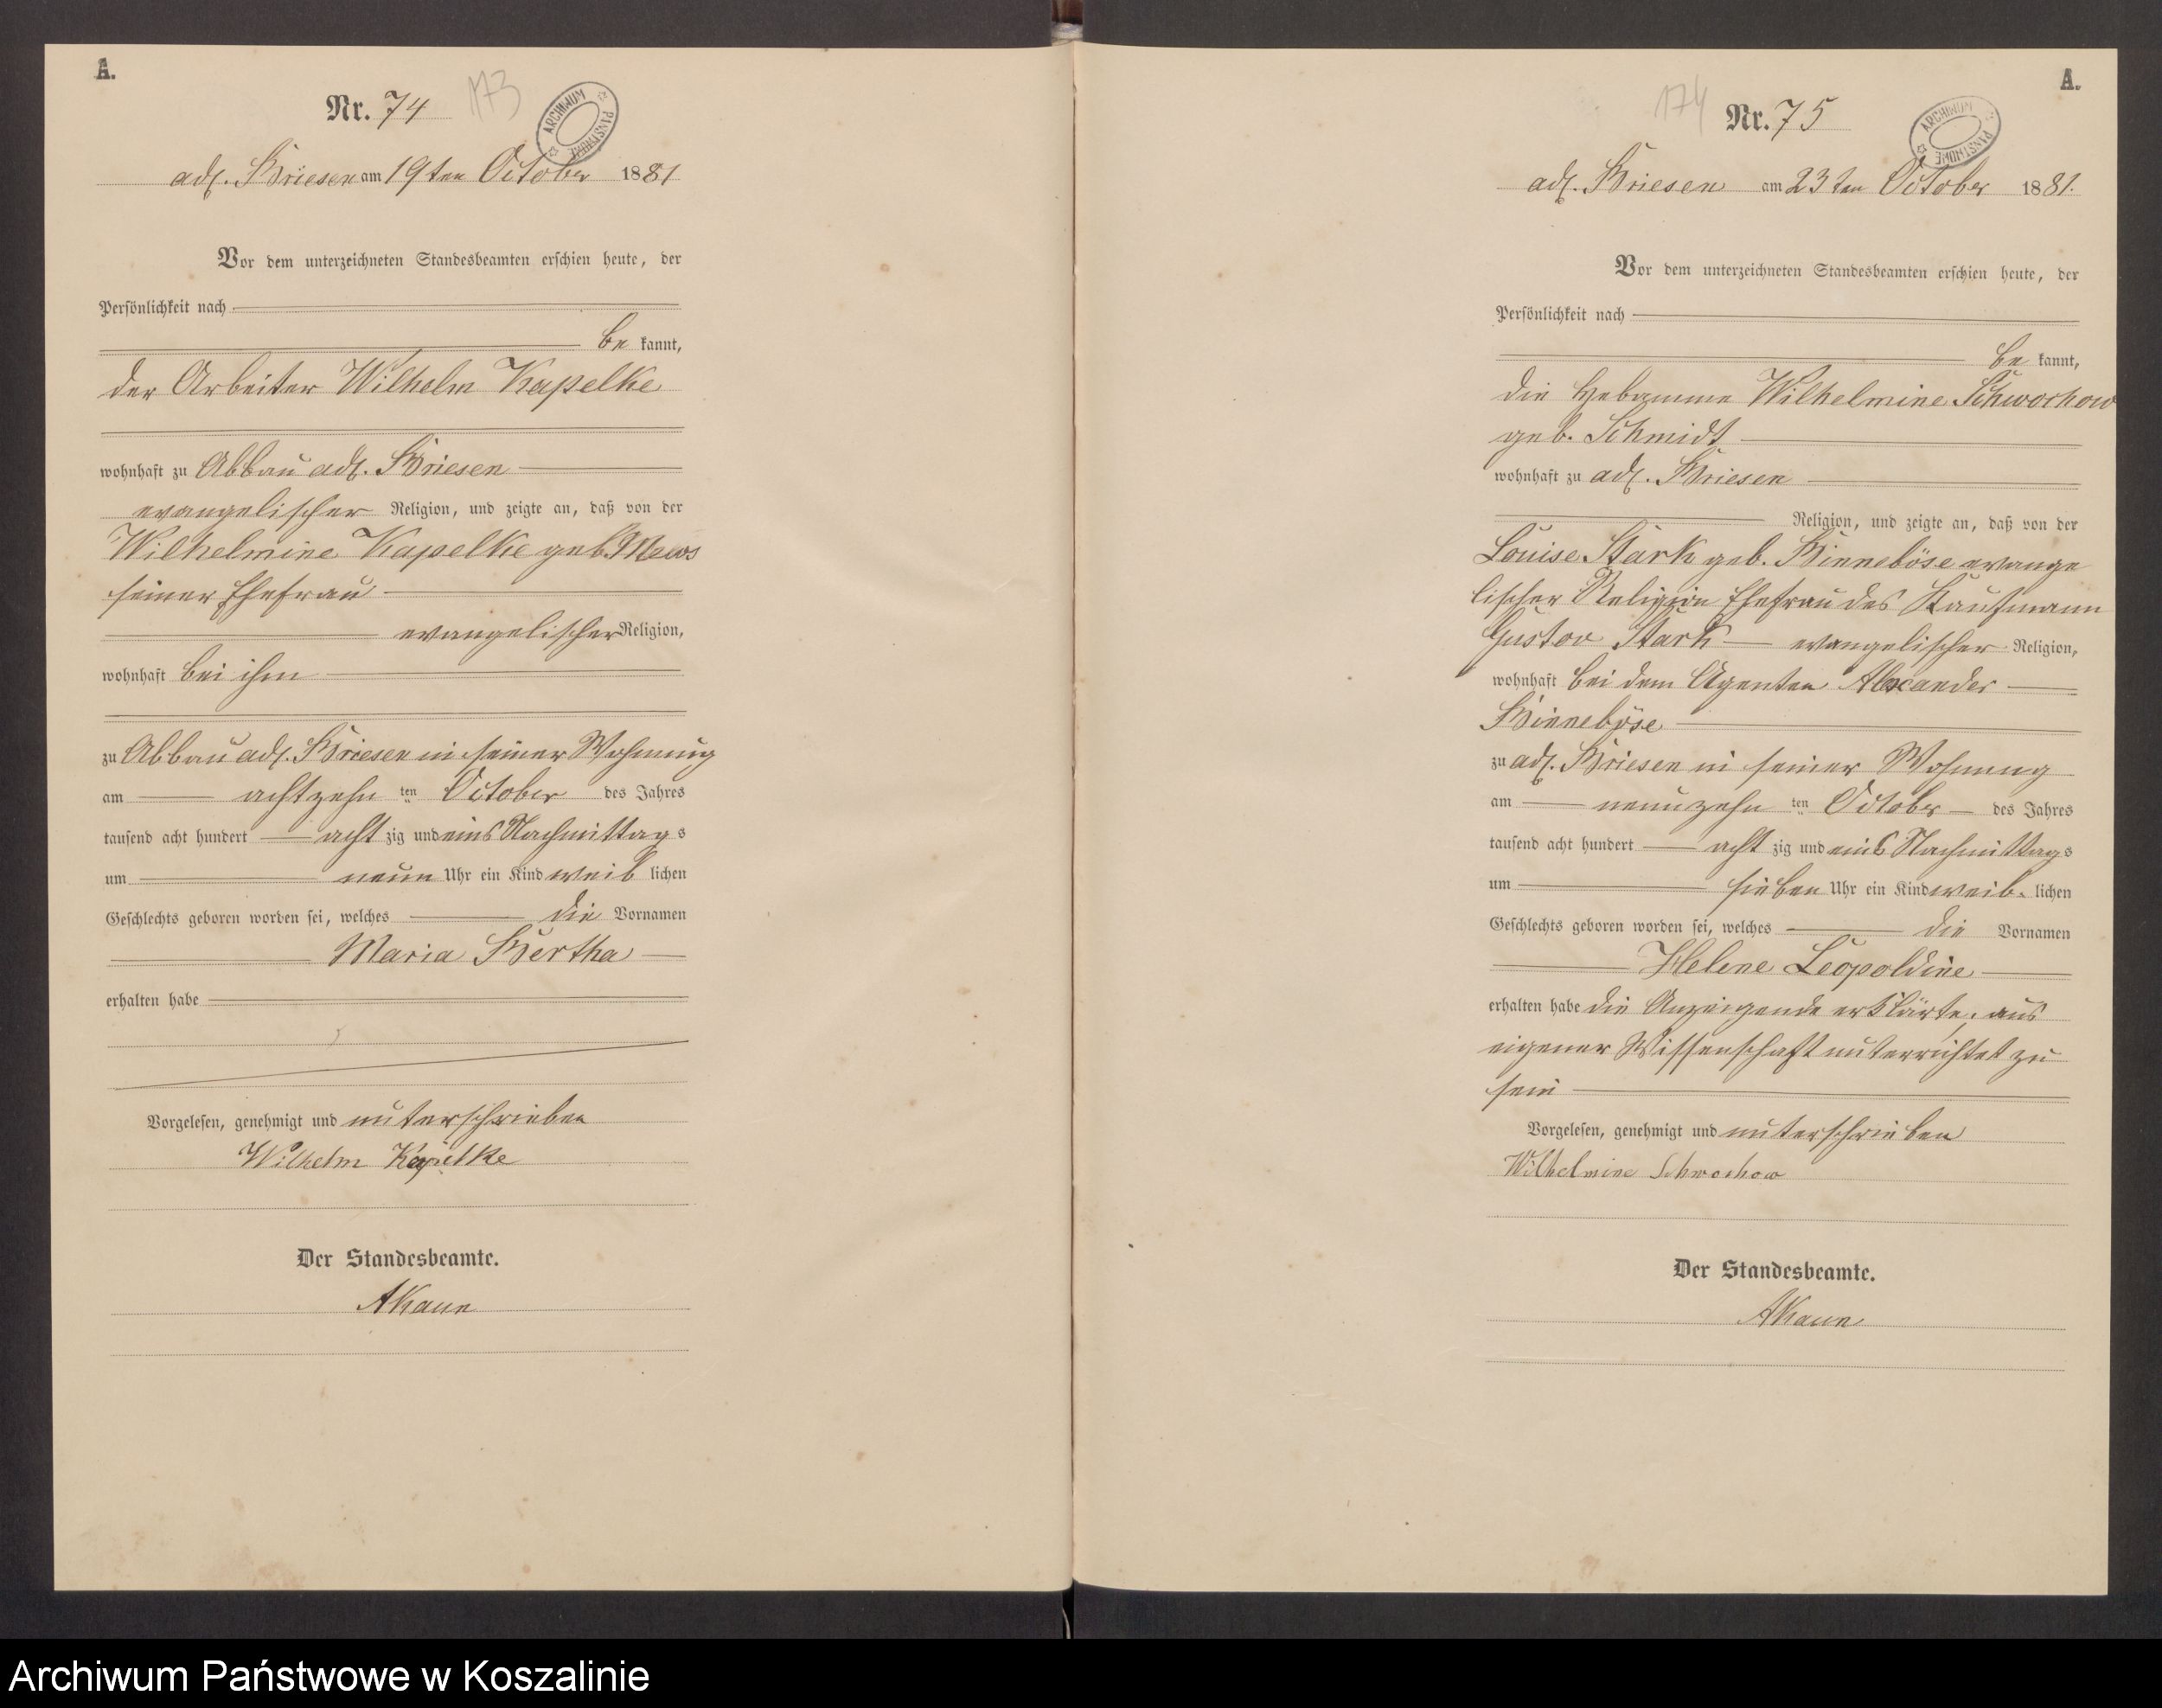 A.
Nr. 74
173
ARCHIWUM PAŃSTWOWE
adl. Briesen am 19ten October 1881
Vor dem unterzeichneten Standesbeamten erschien heute, der
Persönlichkeit nach
be kannt,
der Arbeiter Wilhelm Kapelke
wohnhaft zu Abbau adl. Briesen
evangelischer Religion, und zeigte an, daß von der
Wilhelmine Kapelke geb. Mews
seiner Ehefrau
evangelischer Religion,
wohnhaft bei ihm
zu Abbau adl. Briesen in seiner Wohnung
am achtzehn ten October des Jahres
tausend acht hundert acht zig und eins Nachmittags
um neun Uhr ein Kind weib lichen
Geschlechts geboren worden sei, welches die Vornamen
Maria Bertha
erhalten habe
Vorgelesen, genehmigt und unterschrieben
Wilhelm Kapelke
Der Standesbeamte.
AKaun
A.
174
Nr. 75
ARCHIWUM PAŃSTWOWE
adl. Briesen am 23ten October 1881.
Vor dem unterzeichneten Standesbeamten erschien heute, der
Persönlichkeit nach
be kannt,
die Hebamme Wilhelmine Schwochow
geb. Schmidt
wohnhaft zu adl. Briesen
Religion, und zeigte an, daß von der
Louise Stark geb. Binneböse evange
lischer Religion Ehefrau des Kaufmann
Gustav Stark evangelischer Religion,
wohnhaft bei dem Agenten Alexander
Binneböse
zu adl. Briesen in seiner Wohnung
am neunzehn ten October des Jahres
tausend acht hundert acht zig und eins Nachmittags
um sieben Uhr ein Kind weib. lichen
Geschlechts geboren worden sei, welches die Vornamen
Helene Leopoldine
erhalten habe die Anzeigende erklärte, aus
eigener Wissenschaft unterrichtet zu
sein
Vorgelesen, genehmigt und unterschrieben
Wilhelmine Schwochow
Der Standesbeamte.
AKaun
Archiwum Państwowe w Koszalinie